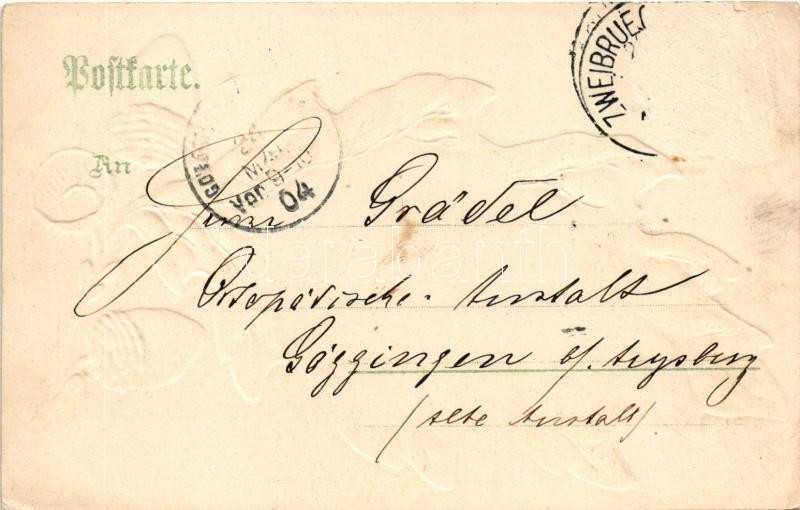 Postkarte.
ZWEIBRUE
An
GÖ
Vor. 9-10
04
Grädel
Ortopädische-Anstalt
Göggingen b/. Augsburg
(alte Anstalt)
darabanth